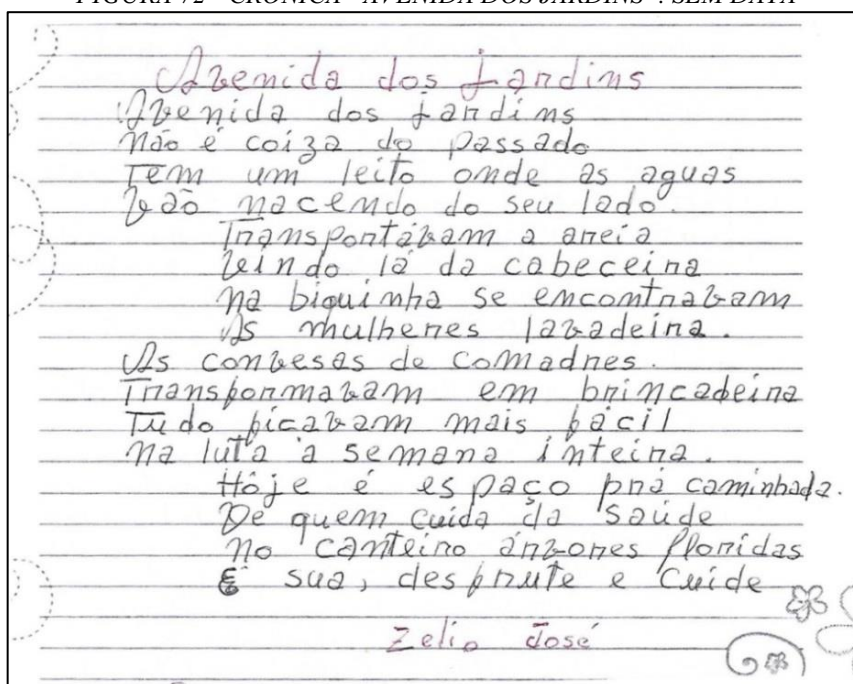 FIGURA 72 – CRÔNICA "AVENIDA DOS JARDINS". SEM DATA
Avenida dos Jardins
Avenida dos Jardins
Não é coiza do passado
Tem um leito onde as aguas
Vão nacendo do seu lado.
Transportávam a areia
Vindo lá da cabeceira
Na biquinha se encontravam
As mulheres lavadeira.
As convesas de comadres.
Transformavam em brincadeira
Tudo ficavam mais fácil
Na luta a semana inteira.
Hôje é espaço prá caminhada.
De quem cuida da saúde
No canteiro árvores floridas
É sua, desfrute e Cuide
Zelio José